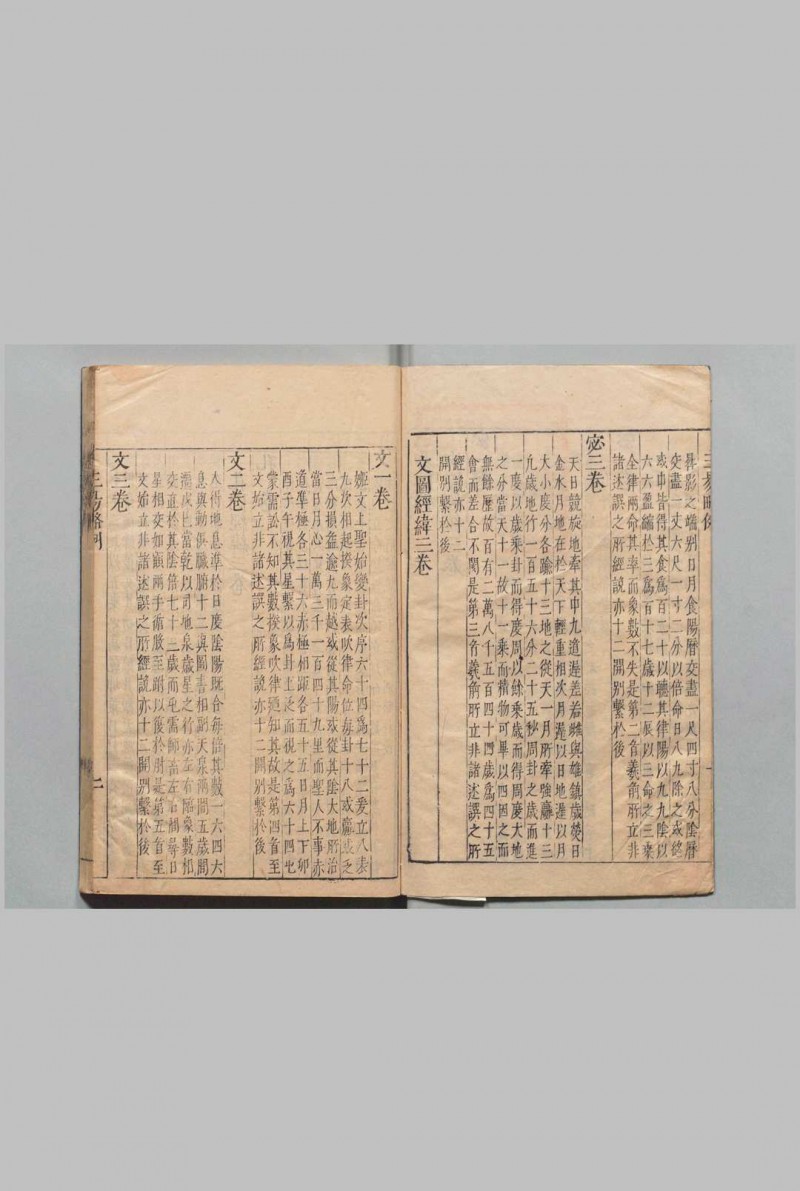 晷影之端別日月食陽曆交盡一尺四寸八分陰曆
交盡一丈六尺一寸二分以倍命日八九除之或爻
或中皆得其食爲百二十以聽其律陽以九九陰以
六六盈縮於三爲百十七歲十二辰以三命之三乘
全律兩命其率而象數不失是第二音羲前所立非
諸述譔之所經說亦十二開別繫於後
宓三卷
天日競旋地牽其中九道遲差若雌與雄鎮歲熒日
金水月地在於天下輕重相次月遲以日地遲以月
大小慶分各躋十三地之從天一月所牽強離十三
九歲地行一百五十六分二十五秒周卦之歲而進
一度以歲乘卦而得度周以餘乘歲而得周度大地
之分當天十一故十一乘而積物可畢以四因之而
無餘歷故百有二萬八千五百四十四歲爲四十五
會而差合不閏是第三音羲前所立非諸述譔之所
經說亦十二
開別繫於後
文圖經緯三卷
文一卷
姬文上聖始變卦次序六十四爲七十二爰立八表
九次相起揆象定表吹律命位每卦十八或
三分損益逾九而越或從其陽或從其陰大地所治
當日月心一萬三千一百四十九里而聖人不事赤
道準極各三十六赤極相距各五十五日月上下卯
酉子午視其星繫以爲卦上反而視之爲六十四也
蒙需訟不知其數揆象吹律迺知其故是第四音至
文始立非諸述譔之所經說亦十二開別繫於後
文二卷
人得地息準於日度陰陽旣合每倍其數一六四六
息與動俱臟腑十二與圖書相
交直於其陰倍七十三歲而
星相交如頤兩手循肱至
文始立非諸述譔之所經說亦十二開別繫於後
文三卷
二